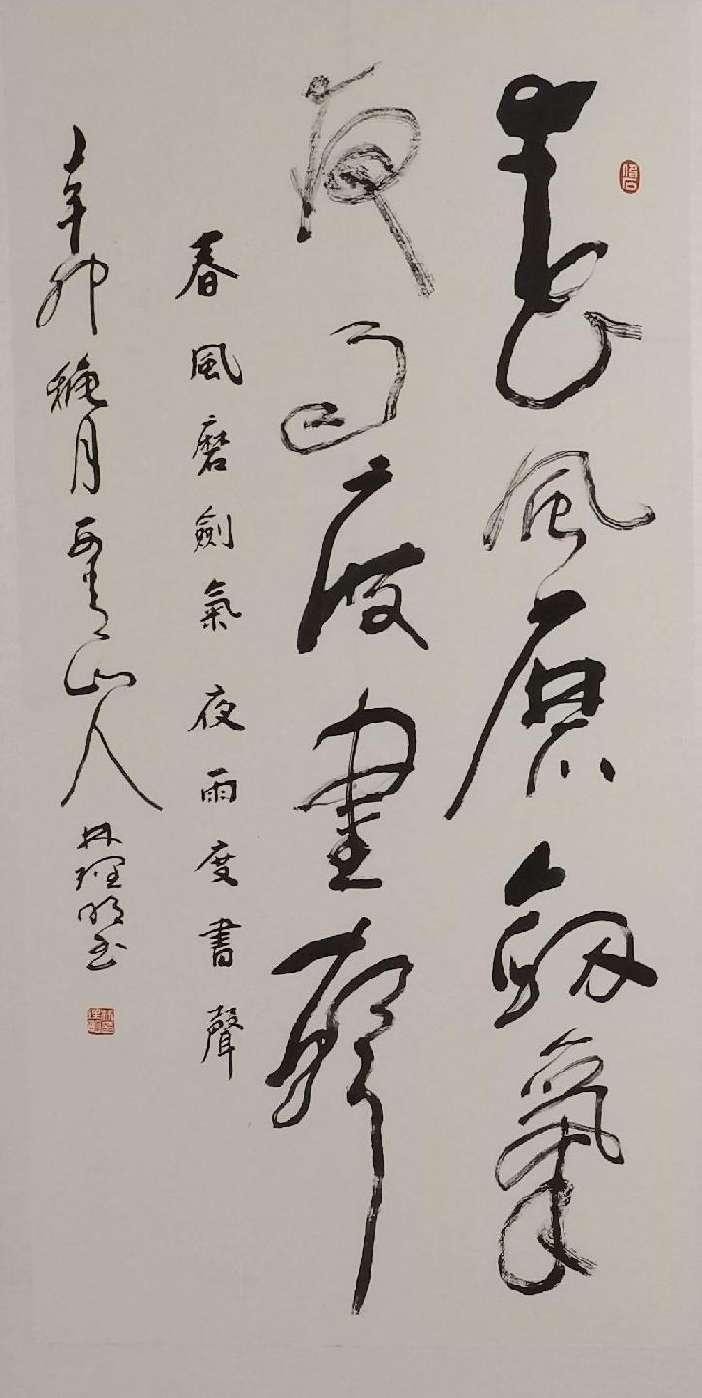 春風磨劍氣
夜雨度書聲
春風磨劍氣 夜雨度書聲
辛卯穐月 青山人 林理明書